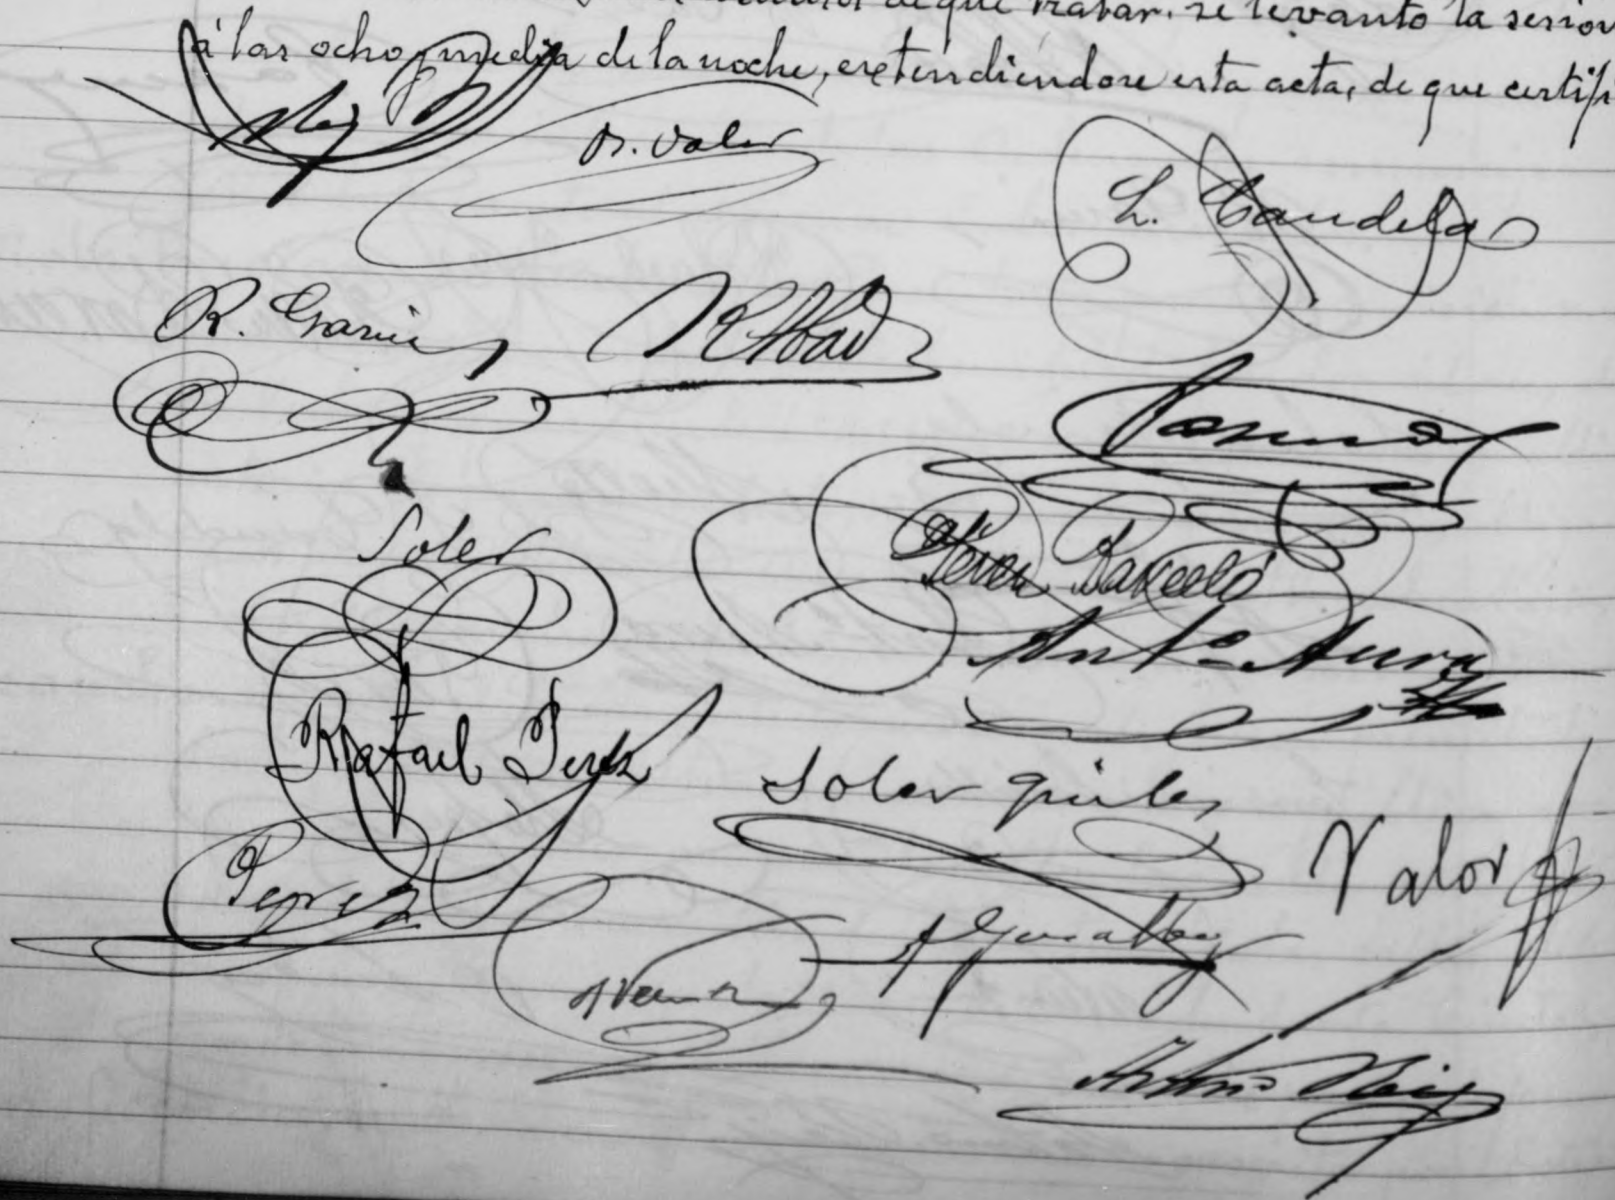 de que tratar, se levantó la sesión
á las ocho y media de la noche, extendiéndose esta acta, de que certifi
R. Valor
L. Candela
R. Garcia R Abad
Soler
Pérez Barceló
Ant.º Aura
Rafael Perez
Soler Quiles
Valor
Perez
A Gonzalbez
Arturo Reig